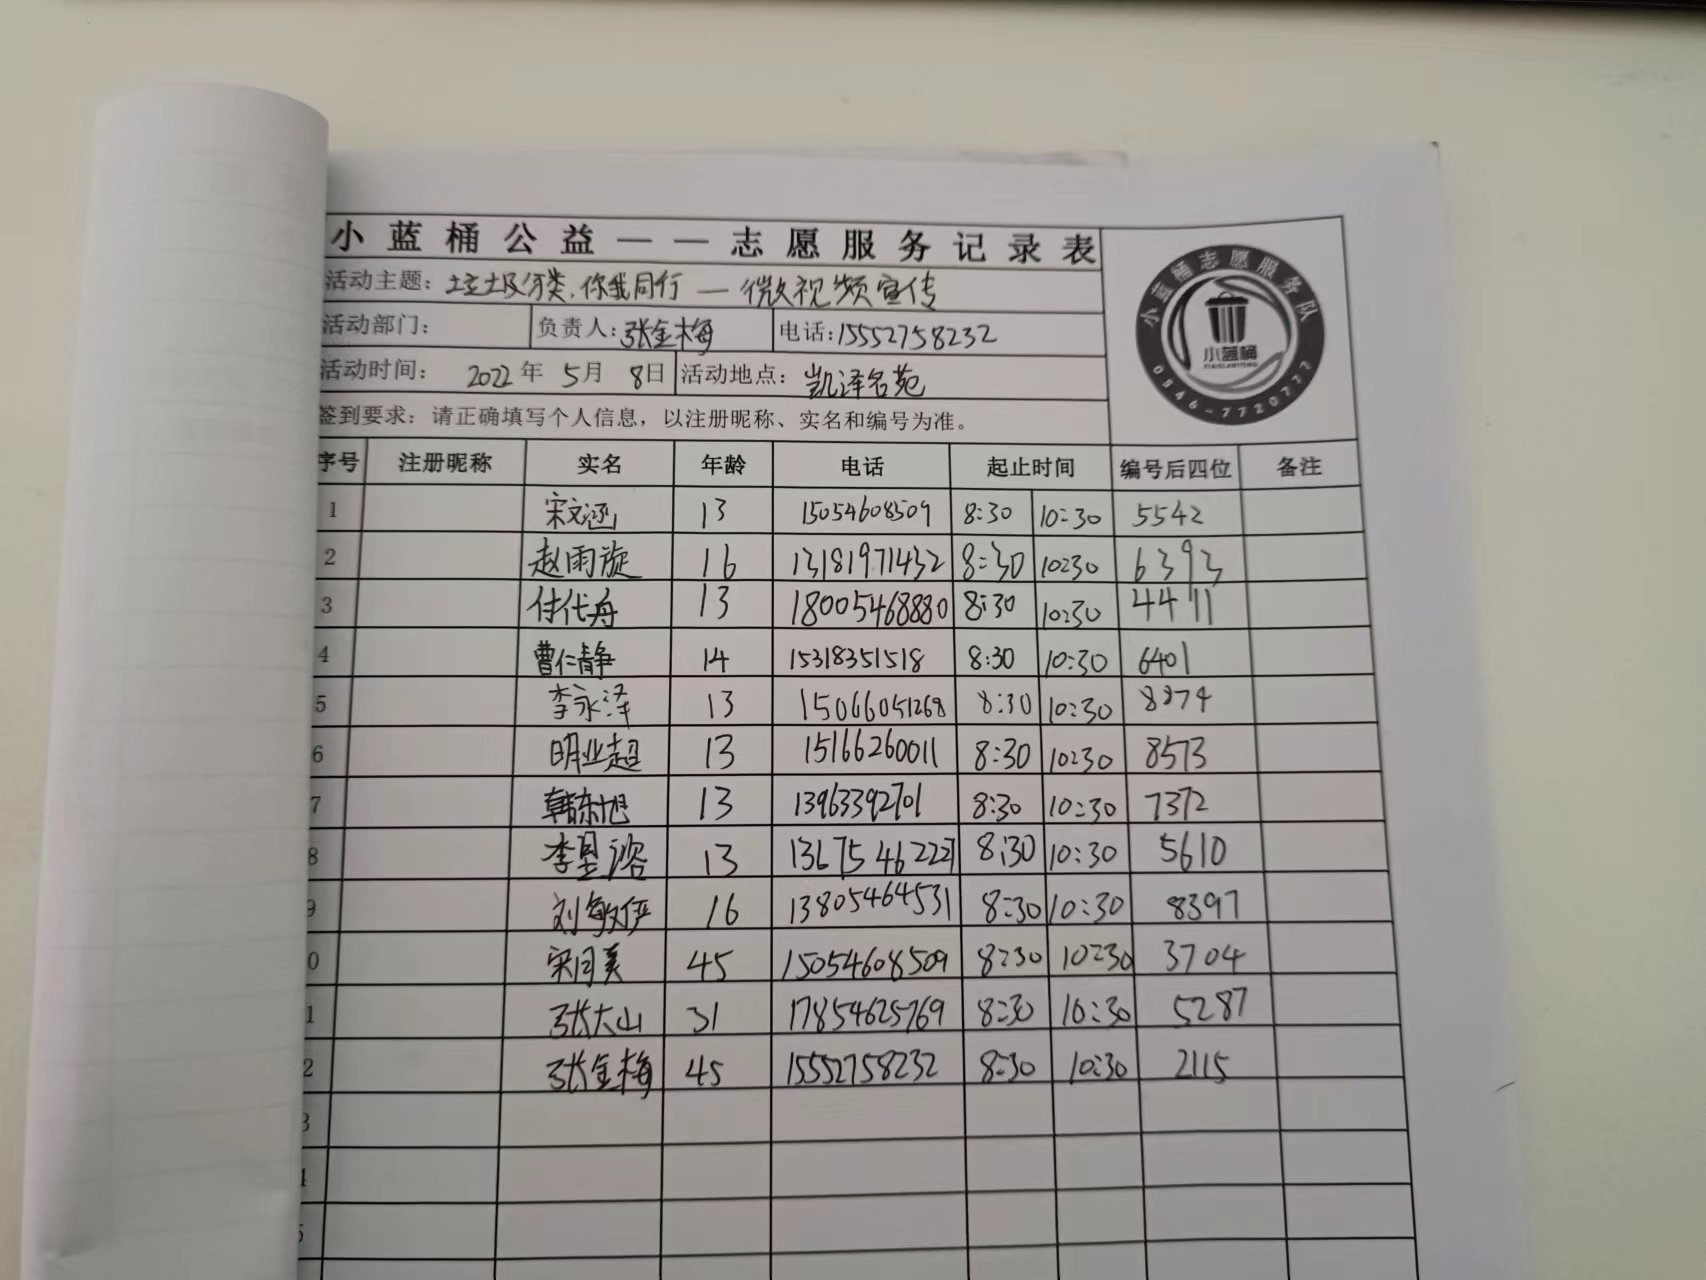 小蓝桶公益——志愿服务记录表
活动主题：垃圾分类，你我同行 — 微视频宣传
活动部门： 负责人：张金梅 电话：15552758232
活动时间： 2022年 5月 8日 活动地点：凯泽名苑
签到要求：请正确填写个人信息，以注册昵称、实名和编号为准。
小蓝桶志愿服务队
小蓝桶
XIAOLANTONG
0546-7720777
序号 注册昵称 实名 年龄 电话 起止时间 编号后四位 备注
1 宋文涵 13 15054608509 8:30 10:30 5542
2 赵雨旋 16 13181971432 8:30 10:30 6393
3 付代舟 13 18005468880 8:30 10:30 4411
4 曹仁静 14 15318351518 8:30 10:30 6401
5 李永泽 13 15066051268 8:30 10:30 8874
6 明业超 13 15166260011 8:30 10:30 8513
7 韩东旭 13 13963392701 8:30 10:30 7372
8 李星谘 13 13675462227 8:30 10:30 5610
9 刘敏俨 16 13805464531 8:30 10:30 8397
0 宋同美 45 15054608509 8:30 10:30 3704
1 张大山 31 17854625769 8:30 10:30 5287
2 张金梅 45 15552758232 8:30 10:30 2115
3
4
5